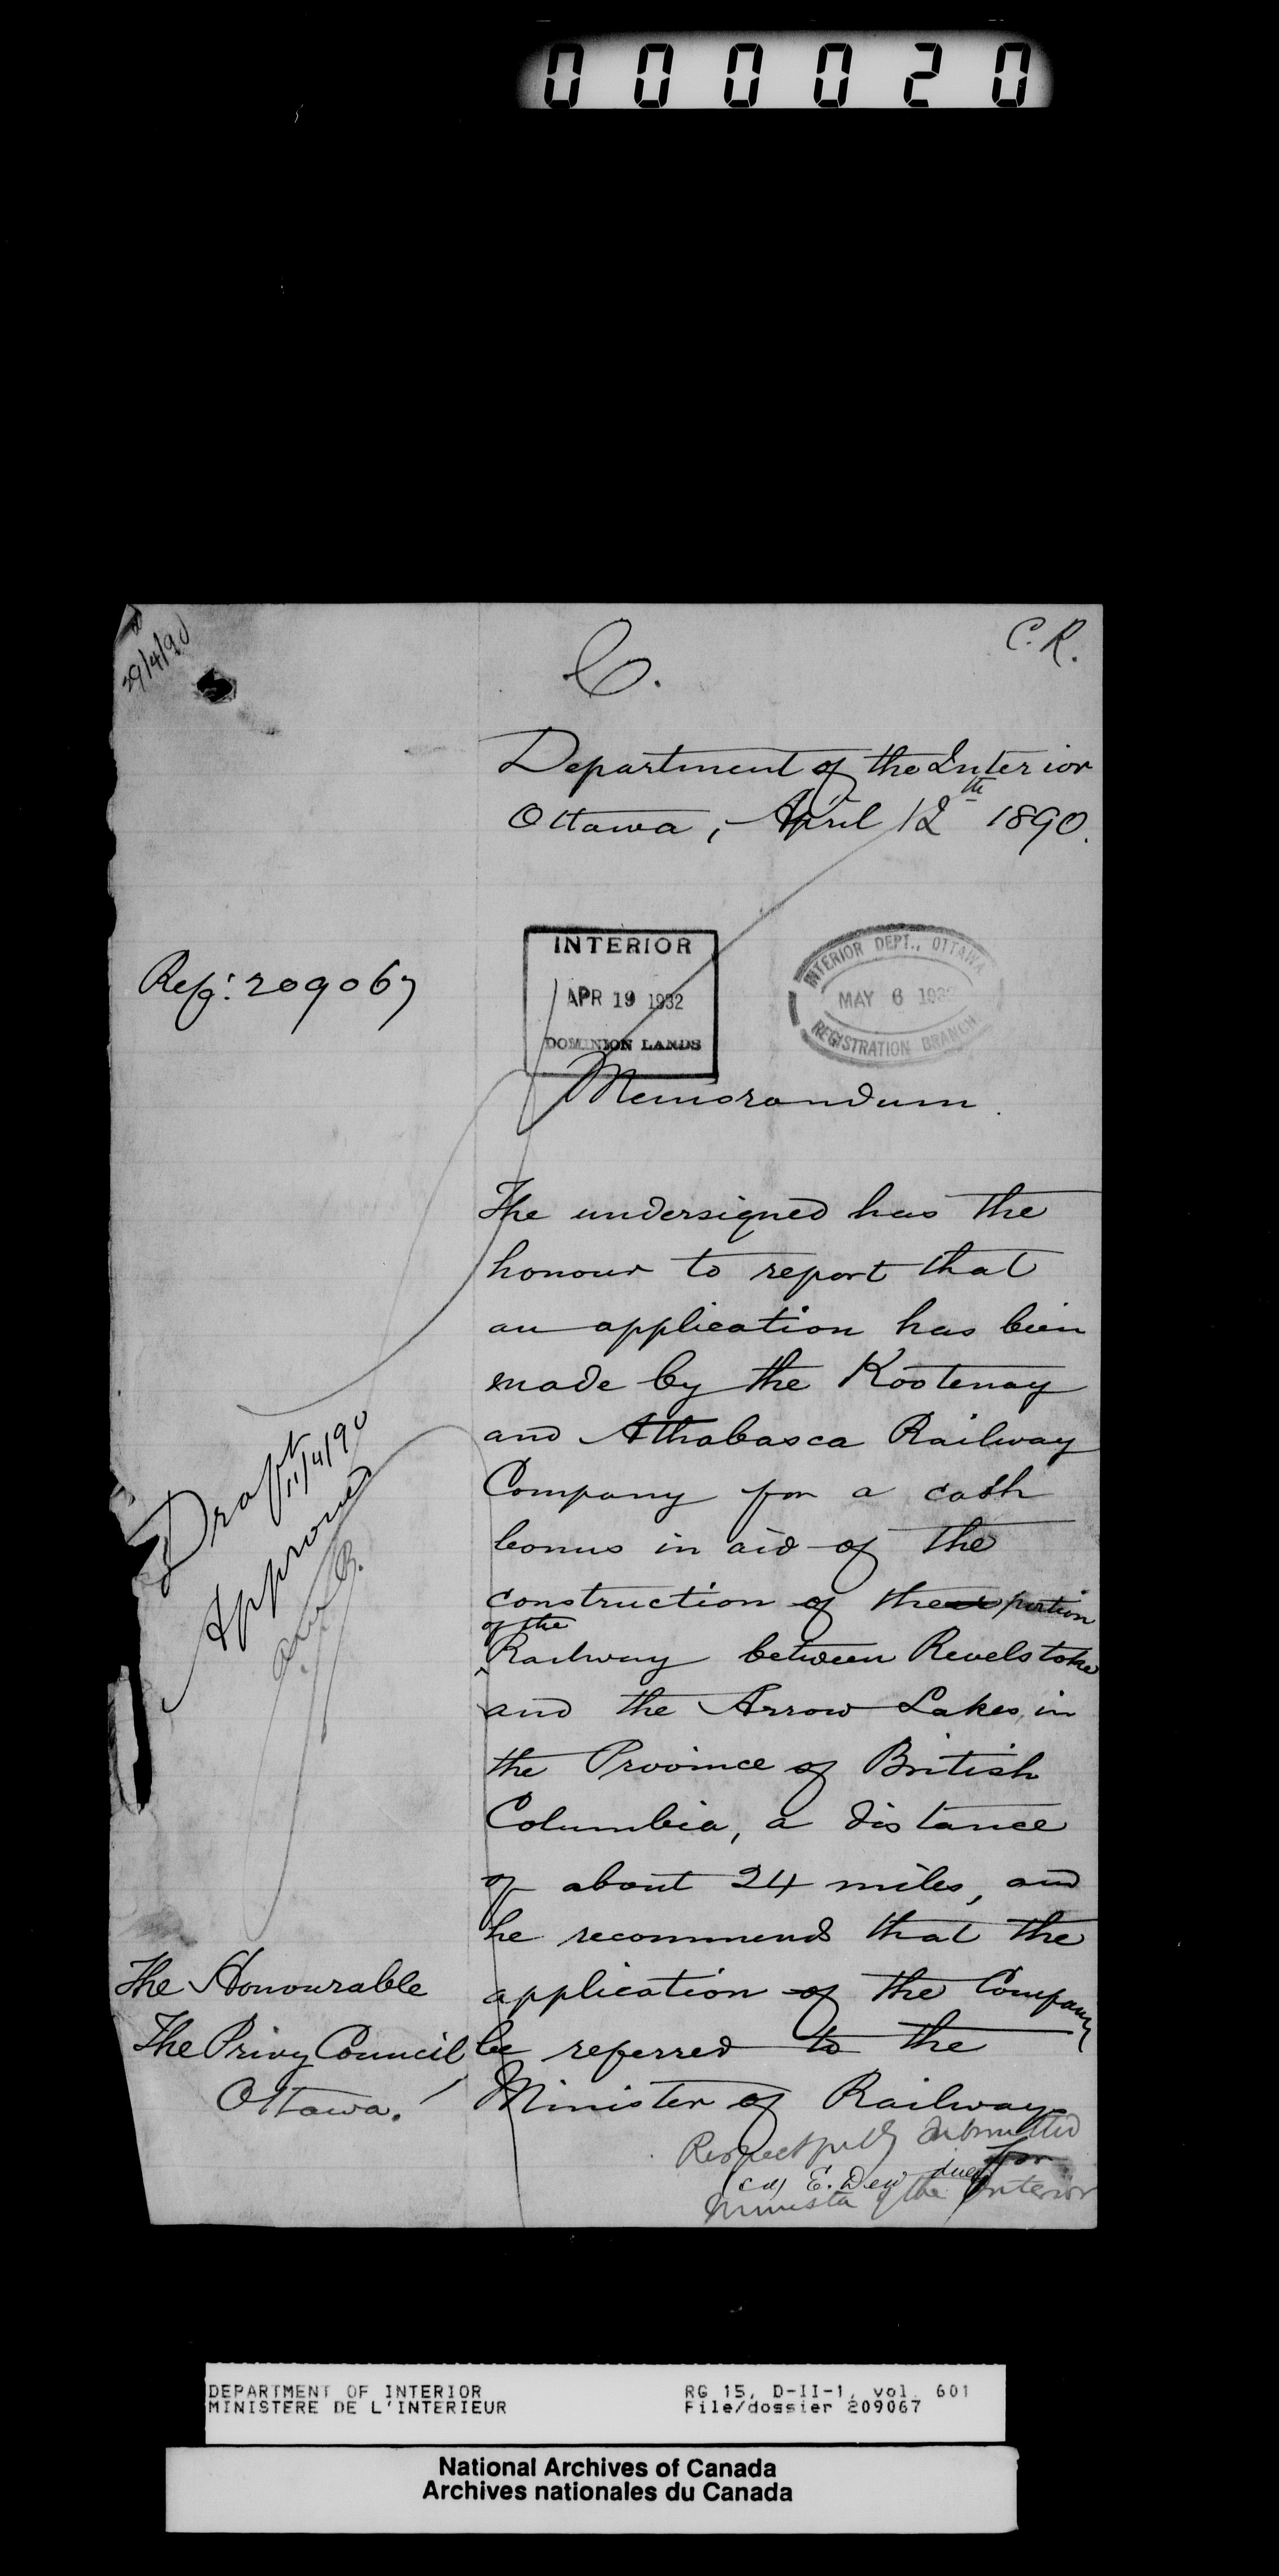 000020
29/4/90
C.R.
C.
Department of the Interior
Ottawa, April 12th 1890.
Refg: 209067
INTERIOR
APR 19 1932
DOMINION LANDS
INTERIOR DEPT., OTTAWA
MAY 6 193
REGISTRATION BRANCH
Memorandum.
The undersigned has the
honour to report that
an application has been
made by the Kootenay
and Athabasca Railway
Company for a cash
bonus in aid of the
construction of the portion
of the
Railway between Revelstoke
and the Arrow Lakes, in
the Province of British
Columbia, a distance
of about 24 miles, and
he recommends that the
application of the Company
be referred to the
Minister of Railways
Respectfully Submitted
E. Dewdney
for
Minister of the Interior
Draft
11/4/90
Approved
The Honourable
The Privy Council
Ottawa.
DEPARTMENT OF INTERIOR
MINISTERE DE L'INTERIEUR
RG 15, D-II-1, vol. 601
File/dossier 209067
National Archives of Canada
Archives nationales du Canada